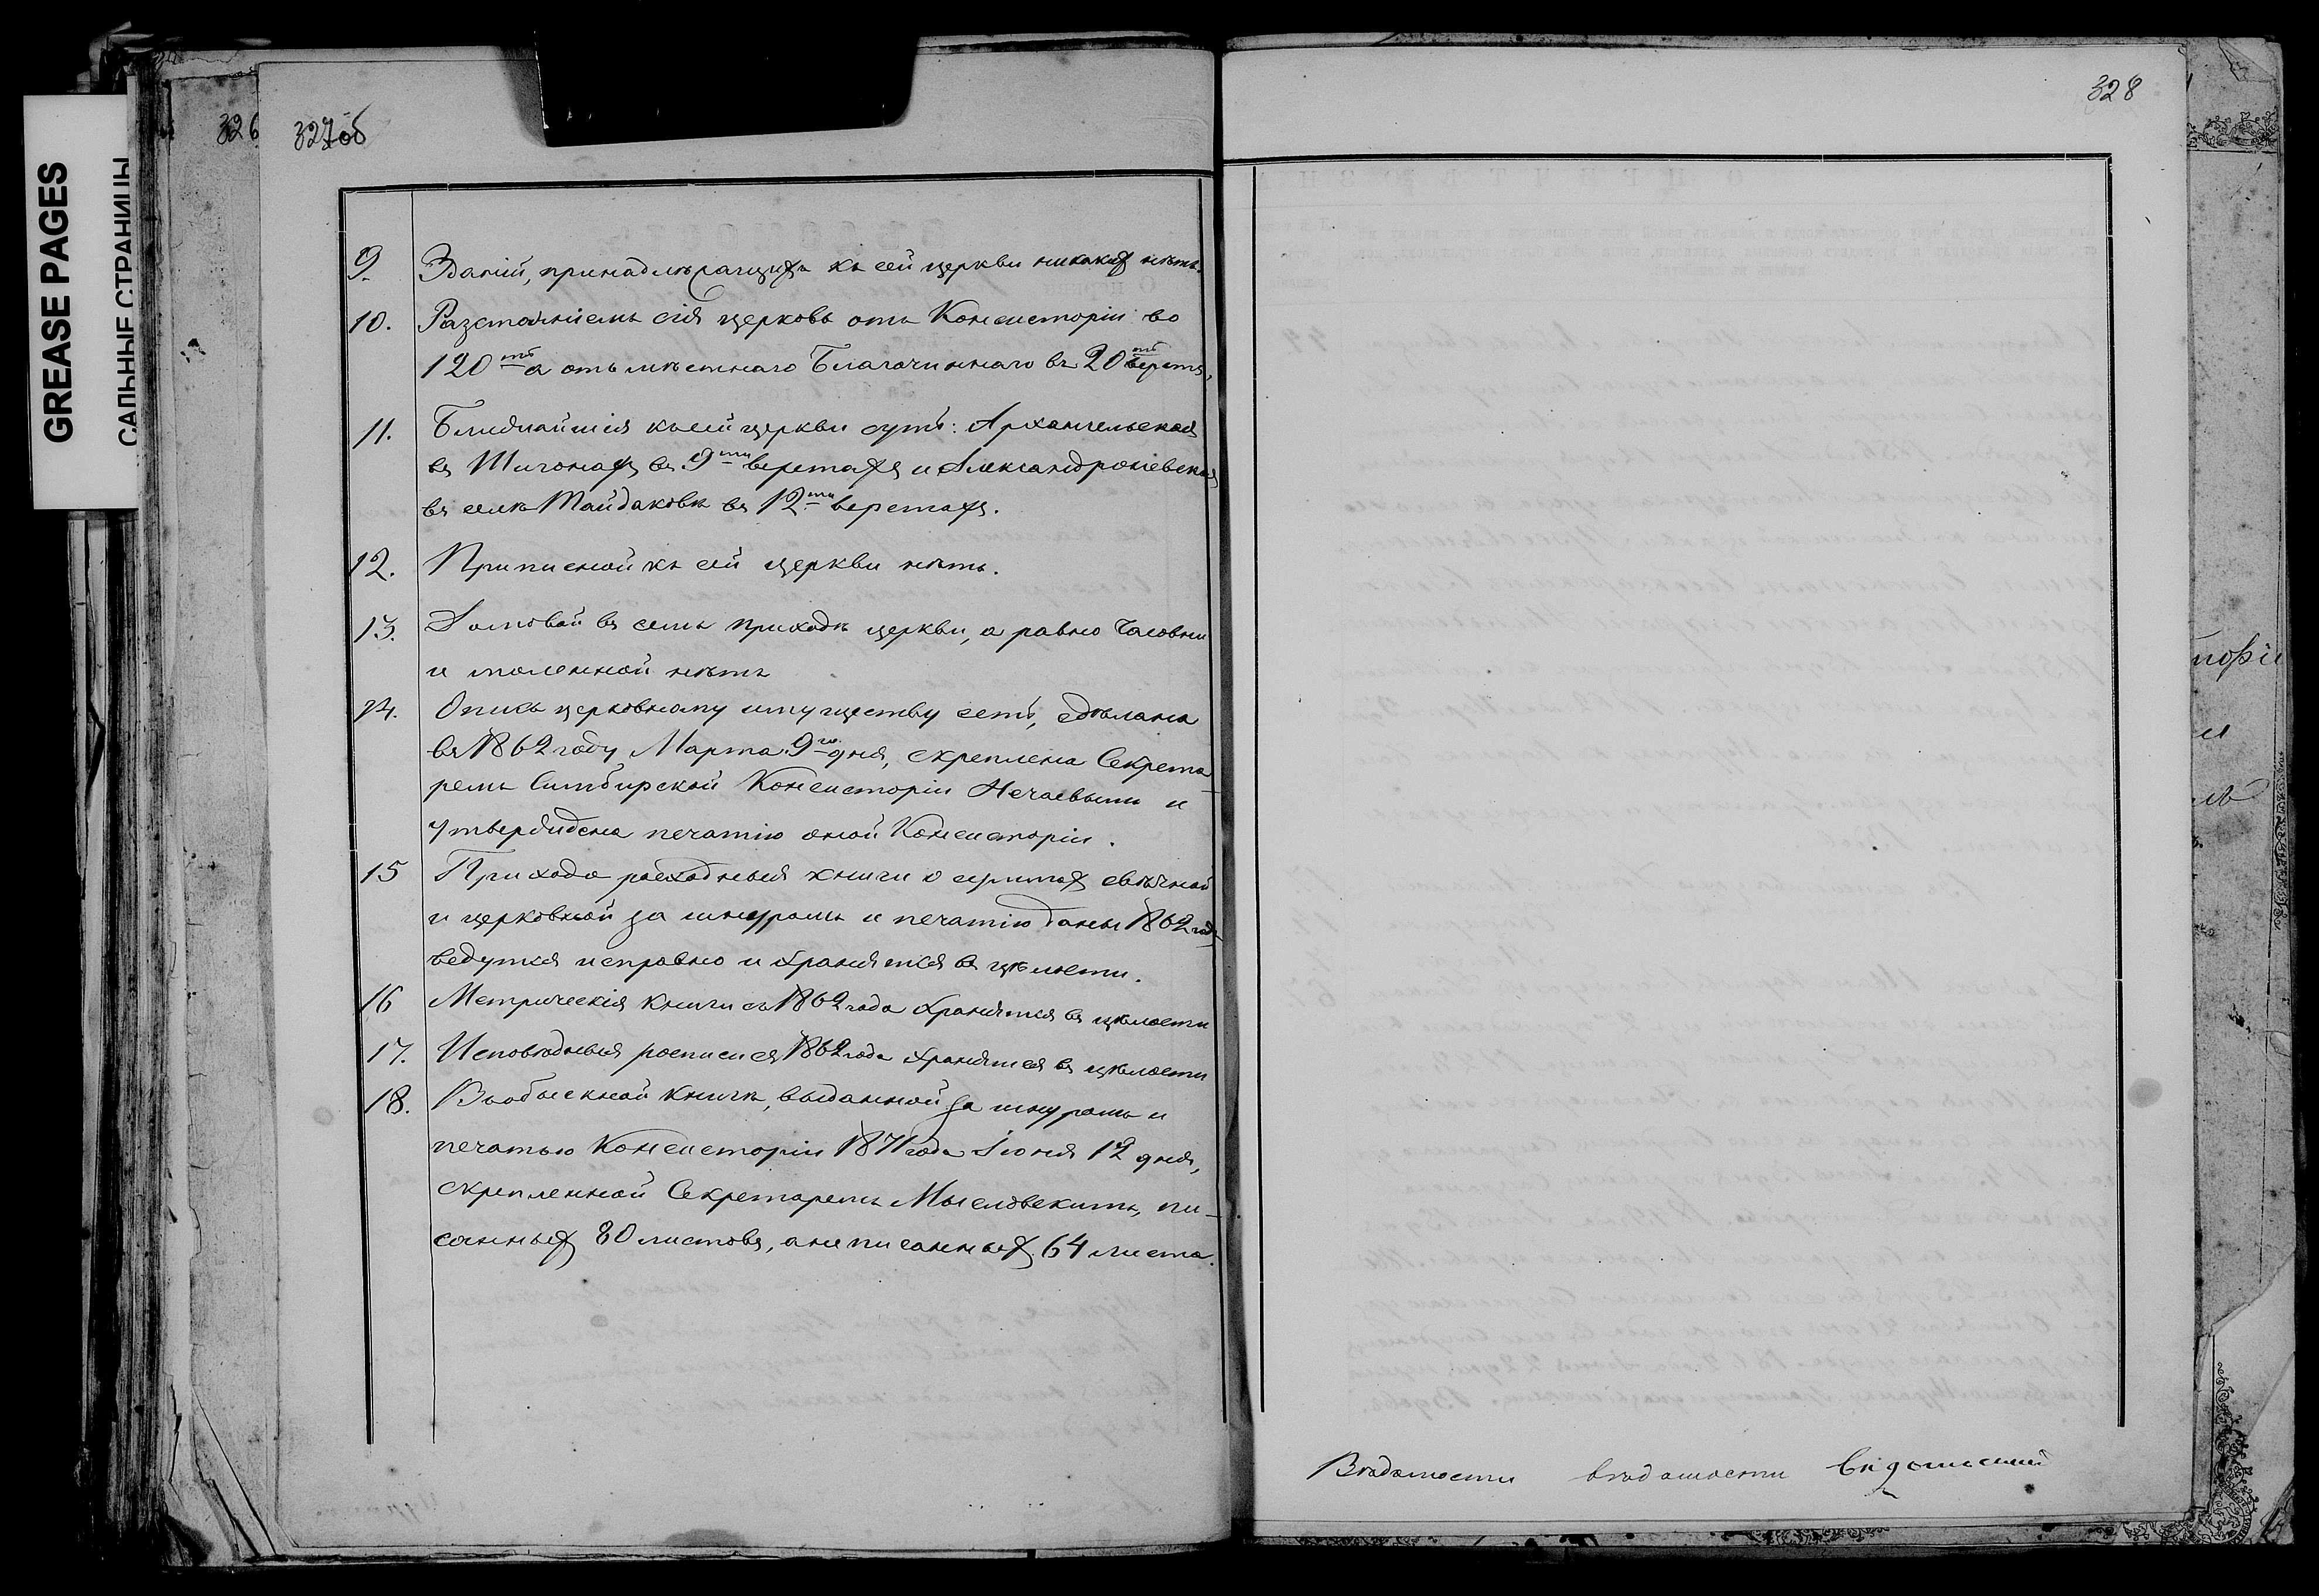 GREASE PAGES
САЛЬНЫЕ СТРАНИЦЫ
326
327об
9. Зданій, принадлежащихъ къ сей церкви никакихъ нѣтъ.
10. Разстояніемъ сія церковь отъ Консисторіи во
120ти а отъ мѣстнаго Благочиннаго въ 20ти верстъ,
11. Ближайшія къ сей церкви суть: Архангельская
въ Шигонахъ въ 9ти верстахъ и Александроневская
въ селѣ Тайдаковѣ въ 12ти верстахъ.
12. Приписной къ сей церкви нѣтъ.
13. Домовой въ семъ приходѣ церкви, а равно часовни
и моленной нѣтъ
14. Опись церковному имуществу есть, сдѣлана
въ 1862 году Марта 9го дня, скреплена Секрета-
ремъ Симбирской Консисторіи Нечаевымъ и
утверждена печатію оной Консисторіи.
15 Приходо расходныя книги о суммахъ свѣчной
и церковной за шнуромъ и печатію даны 1862 года
ведутся исправно и хранятся въ цѣлости.
16 Метрическія книги съ 1862 года хранятся въ цѣлости
17. Исповѣдныя росписи съ 1862 года хранятся въ цѣлости
18. Въ обыскной книгѣ, выданной за шнуромъ и
печатью Консисторіи 1871 года Іюня 12 дня,
скрепленной Секретаремъ Мысловскимъ, пи-
санныхъ 80 листовъ, а не писанныхъ 64 листа.
328
Вѣдомости вѣдомости